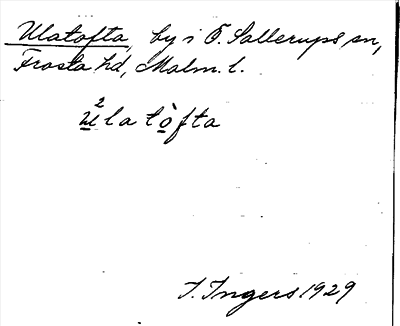 Ulatofta, by i Ö. Sallerups sn,
Frosta hd, Malm. l.
²u̲latò̲fta
I. Ingers 1929